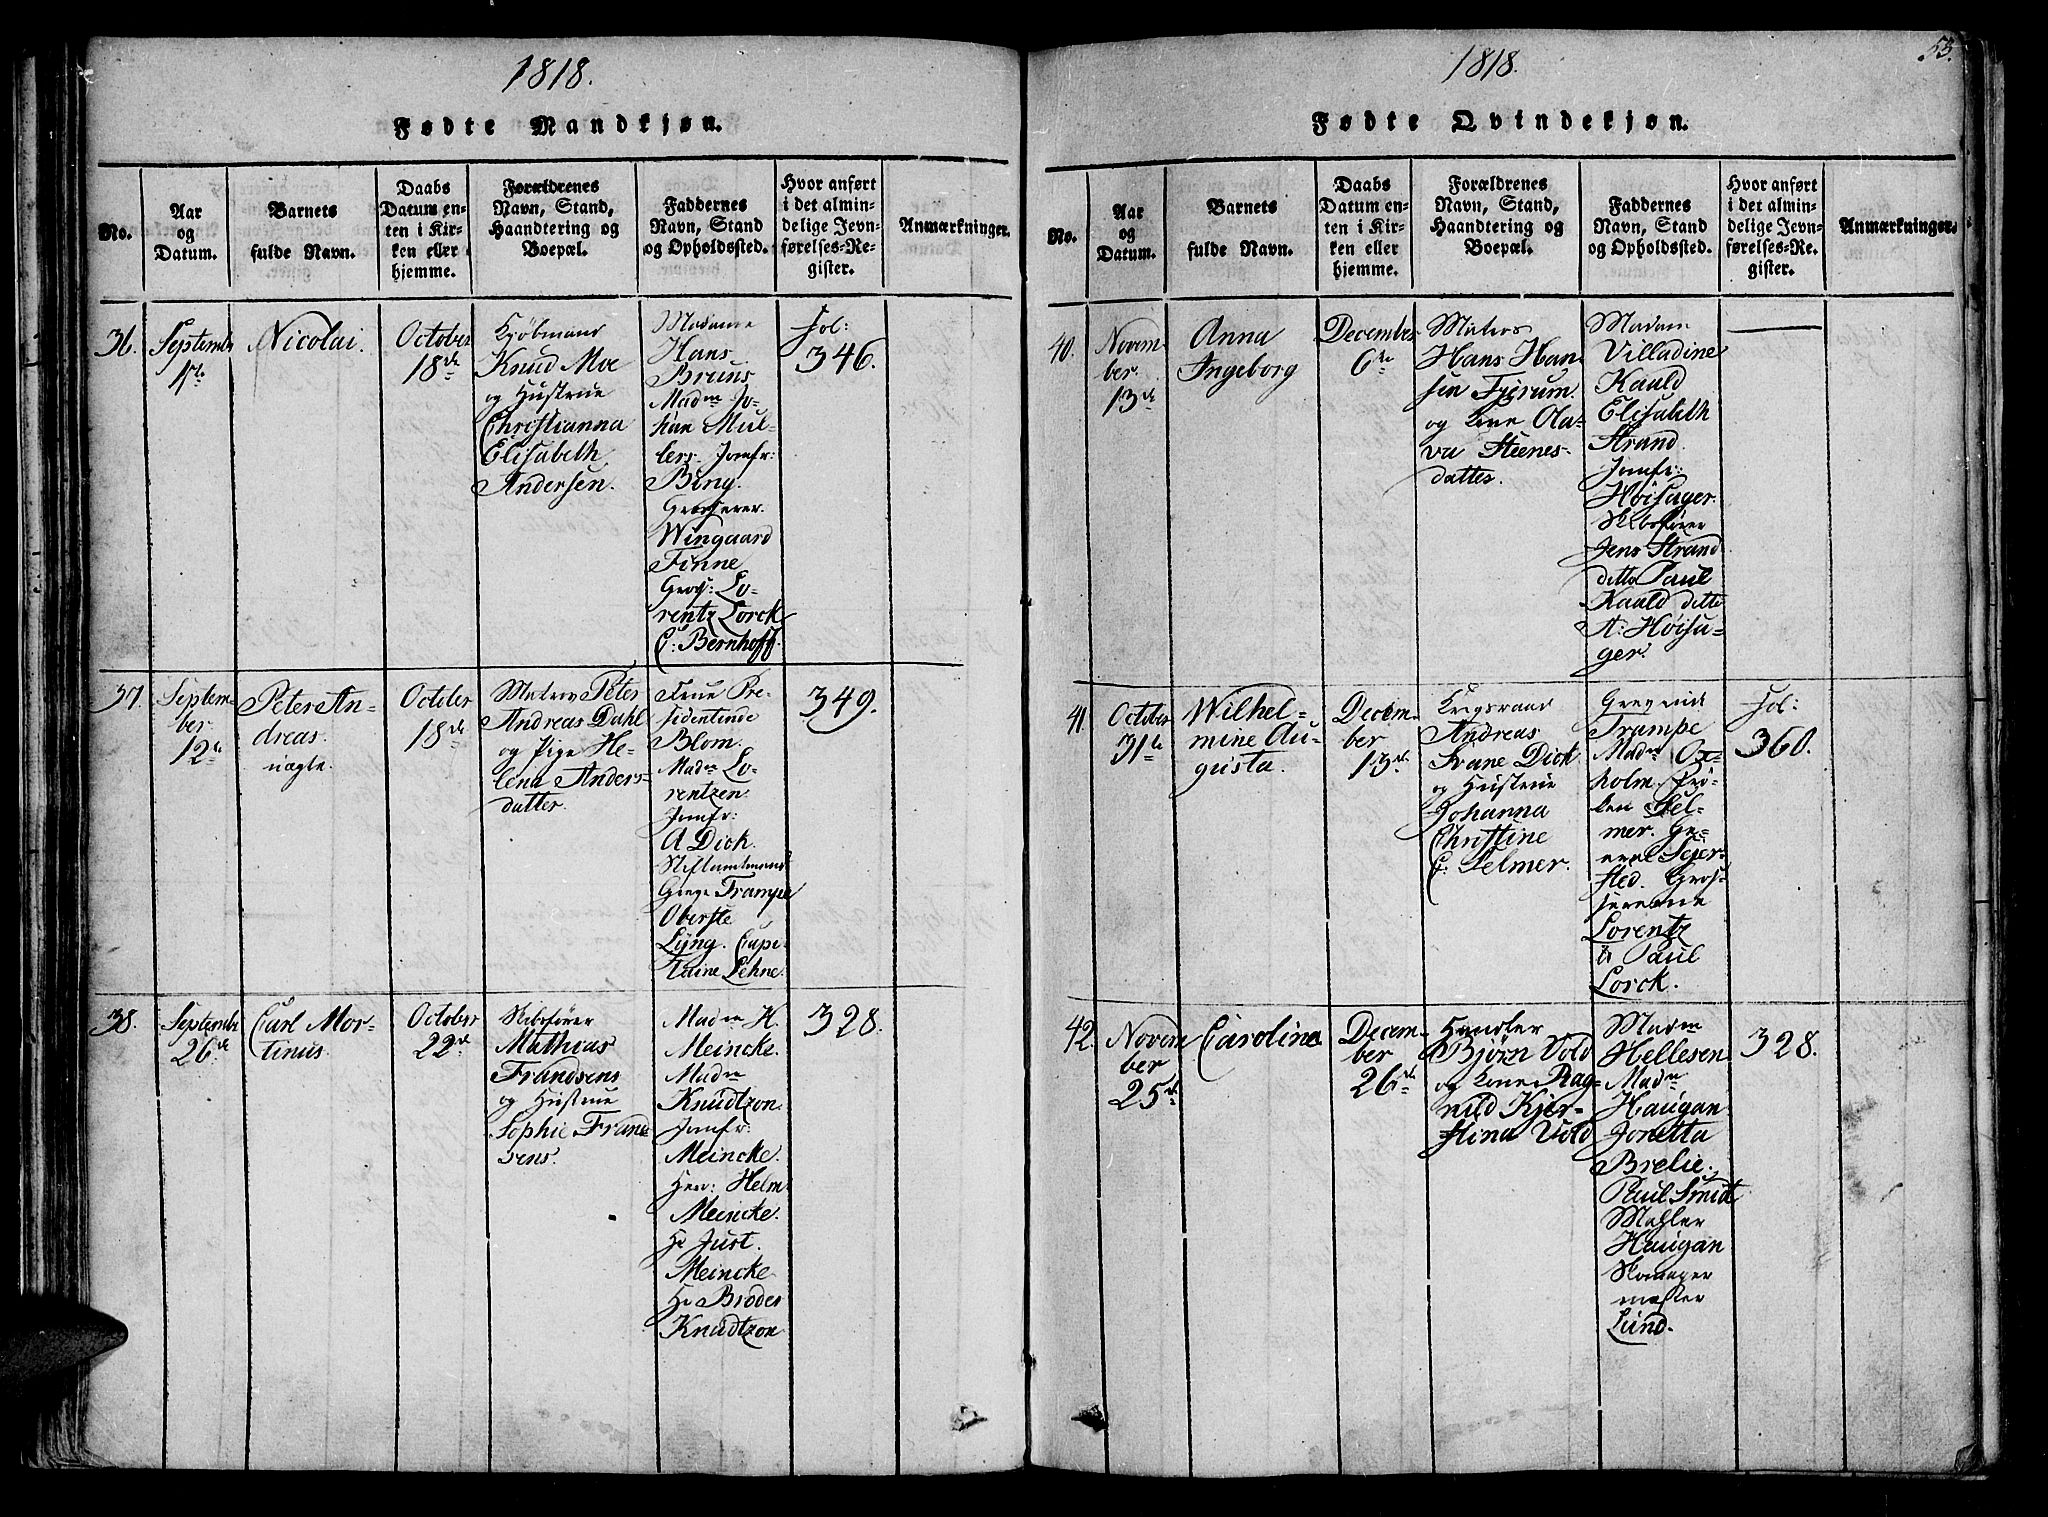 1818.
Fødte Mandkjøn.
No.
Aar
og
Datum.
Barnets
fulde Navn.
Daabs
Datum en-
ten i Kir-
ken eller
hjemme.
Forældrenes
Navn, Stand,
Haandtering og
Boepæl.
Faddernes
Navn, Stand
og Opholdssted.
Hvor anført
i det almin-
delige Jevn-
førelses-Re-
gister.
Anmærkninger.
36.
Septembr
1ste
Nicolai.
October
18de
Kjøbmand
Knud Moe
og Hustrue
Christianna
Elisabeth
Andersen.
Madame
Hans
Bruns
Madm Jo-
han Mül-
lers. Jomfr:
Bing.
Grosserer.
Wingaard
Finne
Gros: Lo-
rentz Lorck
C: Bernhoff.
Fol:
346.
37.
Septem-
ber
12te
Peter An-
dreas.
uægte.
October
18de
Matros Peter
Andreas Dahl
og Pige He-
lena Anders-
datter.
Frue Pre-
sidentinde
Blom.
Madm Lo-
rentzen.
Jomfr:
A Dick.
Stiftamtmand
Greve Trampe
Oberste
Lyng. Capi-
taine Lehne.
349.
38.
Septembr
26de
Carl Mor-
tinus.
October
22de
Skibsfører
Mathias
Frandsens
og Hustrue
Sophie Frand
sens.
Madm H.
Meincke.
Madm
Knudtzon.
Jomfr:
Meincke.
Herr: Helm.
Meincke.
Hr Just.
Meincke
Hr Broder
Knudtzon
1818.
53.
Fødte Qvindekjøn.
No.
Aar
og
Datum.
Barnets
fulde Navn.
Daabs
Datum en-
ten i Kir-
ken eller
hjemme.
Forældrenes
Navn, Stand,
Haandtering og
Boepæl.
Faddernes
Navn, Stand
og Opholdssted.
Hvor anført
i det almin-
delige Jevn-
førelses-Re-
gister.
Anmærkninger.
40.
Novem-
ber.
13de
Anna
Ingeborg
December
6te
Matros
Hans Han-
sen Fjerum.
og Kone Ola-
va Steenes-
datter.
Madam
Villadine
Kauld
Elisabeth
Strand.
Jomfr:
Høisager.
Skibsfører
Jens Strand
ditto Paul
Kauld ditto
A: Høisa-
ger.
41.
October
31te
Wilhel-
mine Au-
gusta.
Decem-
ber
13de
Krigsraad
Andreas
Svane Dick
og Hustrue
Johanna
Christine
C: Selmer.
Grevinde
Trampe
Madm Ox-
holm. Frø-
ken Sel-
mer. Ge-
neral Sejer-
sted. Gros-
sererne
Lorentz
& Paul
Lorck.
Fol:
360.
42.
Novem
ber
25de
Carolina
Decem-
ber
26de
Handler
Bjørn Vold
og Kone Rag-
nild Kjer-
stina Vold
Madm
Hellesen
Madm
Haugan
Jonetta
Brelie.
Paul Smidt
Mahler
Haugan
Skomager
mester
Lund.
328.